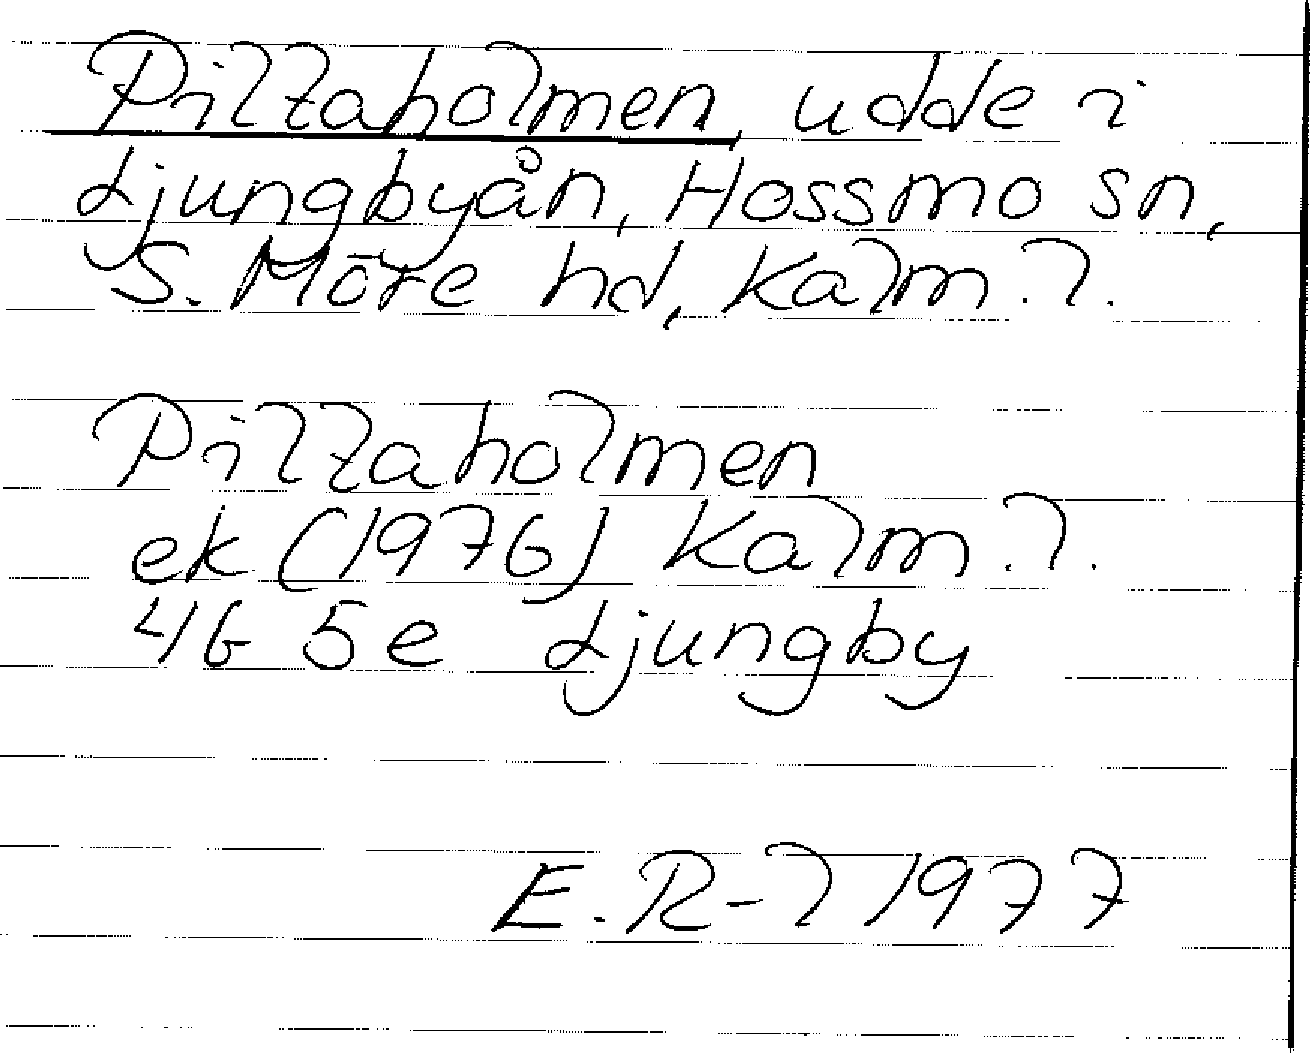 Pillaholmen, udde i
Ljungbyån, Hossmo sn,
S. Möre hd, Kalm.l.
Pillaholmen
ek (1976) Kalm.l.
4G 5e Ljungby
E. R-l 1977